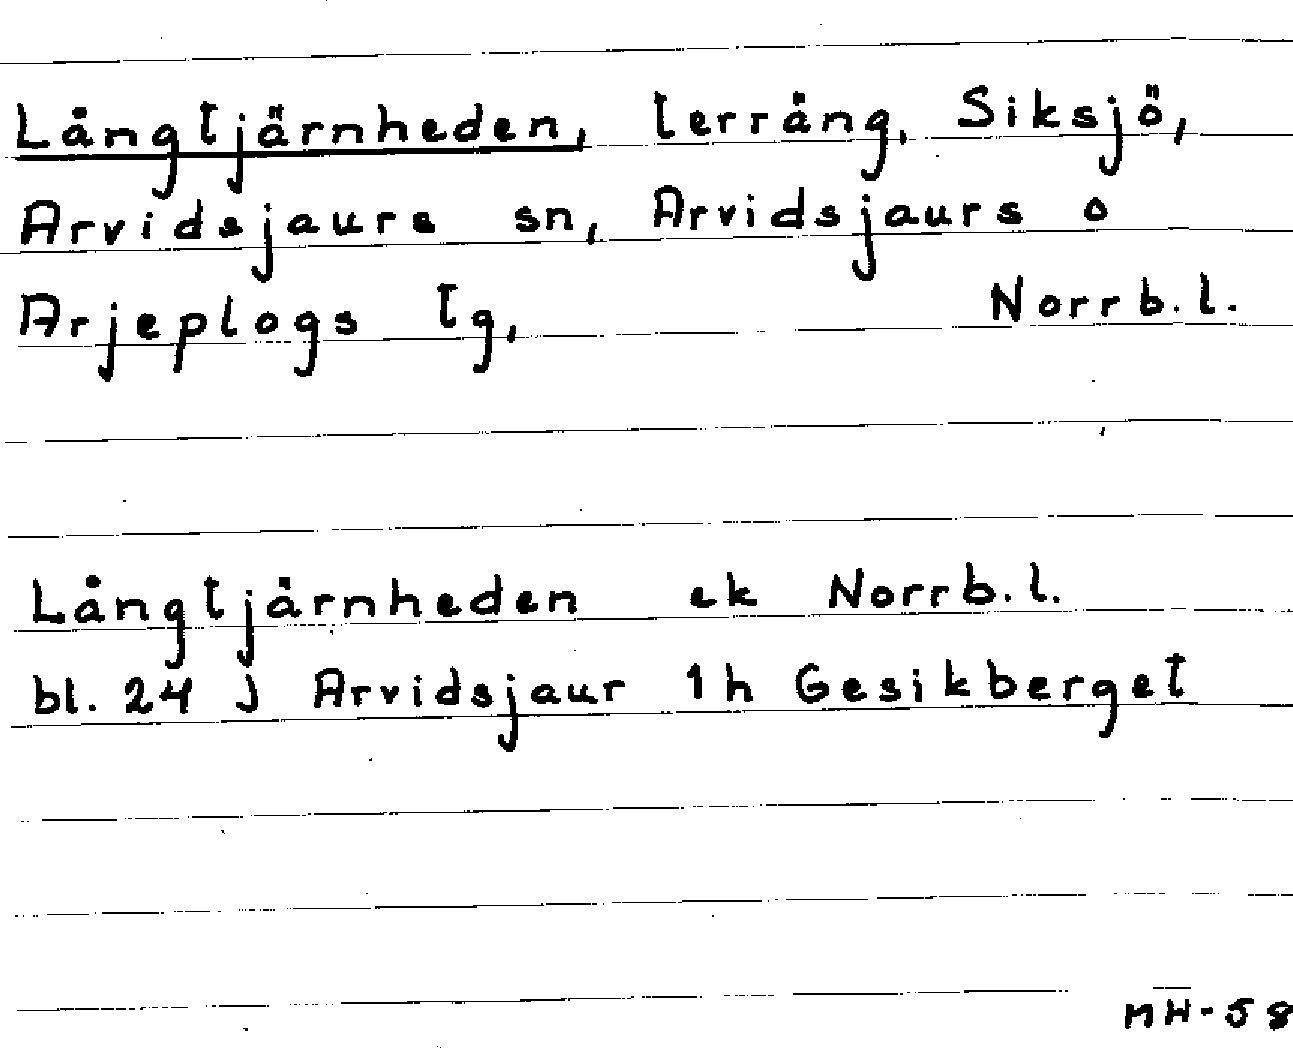 Långtjärnheden, terräng, Siksjö,
Arvidsjaurs sn, Arvidsjaurs o
Arjeplogs tg, Norrb.l.
Långtjärnheden ek Norrb.l.
bl. 24 J Arvidsjaur 1h Gesikberget
MH-58